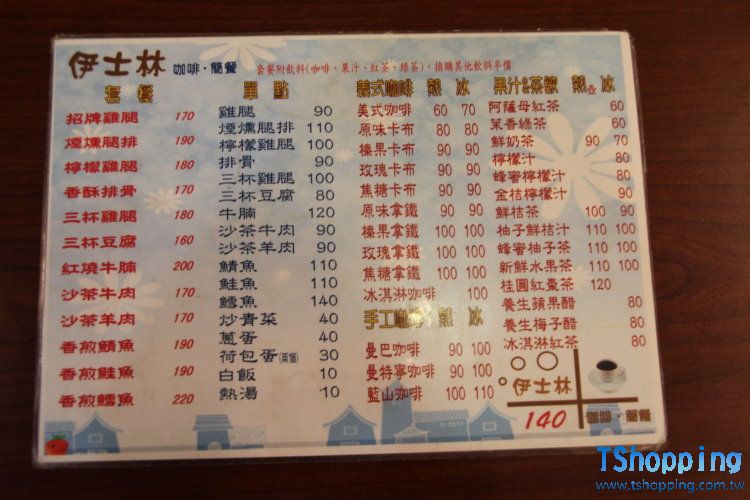 伊士林 咖啡·簡餐 套餐附飲料(咖啡、果汁、紅茶、綠茶),換購其他飲料半價
套餐
招牌雞腿 170
煙燻腿排 190
檸檬雞腿 180
香酥排骨 170
三杯雞腿 180
三杯豆腐 160
紅燒牛腩 200
沙茶牛肉 170
沙茶羊肉 170
香煎鯖魚 190
香煎鮭魚 190
香煎鱈魚 220
單點
雞腿 90
煙燻腿排 110
檸檬雞腿 100
排骨 90
三杯雞腿 100
三杯豆腐 80
牛腩 120
沙茶牛肉 90
沙茶羊肉 90
鯖魚 110
鮭魚 110
鱈魚 140
炒青菜 40
蔥蛋 40
荷包蛋(兩個) 30
白飯 10
熱湯 10
義式咖啡 熱 冰
美式咖啡 60 70
原味卡布 80 80
榛果卡布 90 90
玫瑰卡布 90 90
焦糖卡布 90 90
原味拿鐵 90 90
榛果拿鐵 100 100
玫瑰拿鐵 100 100
焦糖拿鐵 100 100
冰淇淋咖啡 100
手工咖啡 熱 冰
曼巴咖啡 90 100
曼特寧咖啡 90 100
藍山咖啡 100 110
果汁&茶飲 熱壺 冰
阿薩母紅茶 60
茉香綠茶 60
鮮奶茶 90 70
檸檬汁 80
蜂蜜檸檬汁 80
金桔檸檬汁 90
鮮桔茶 100 90
柚子鮮桔汁 110 100
蜂蜜柚子茶 110 100
新鮮水果茶 110 100
桂圓紅棗茶 120
養生蘋果醋 80
養生梅子醋 80
冰淇淋紅茶 80
伊士林
140 咖啡·簡餐
TShopping
www.tshopping.com.tw